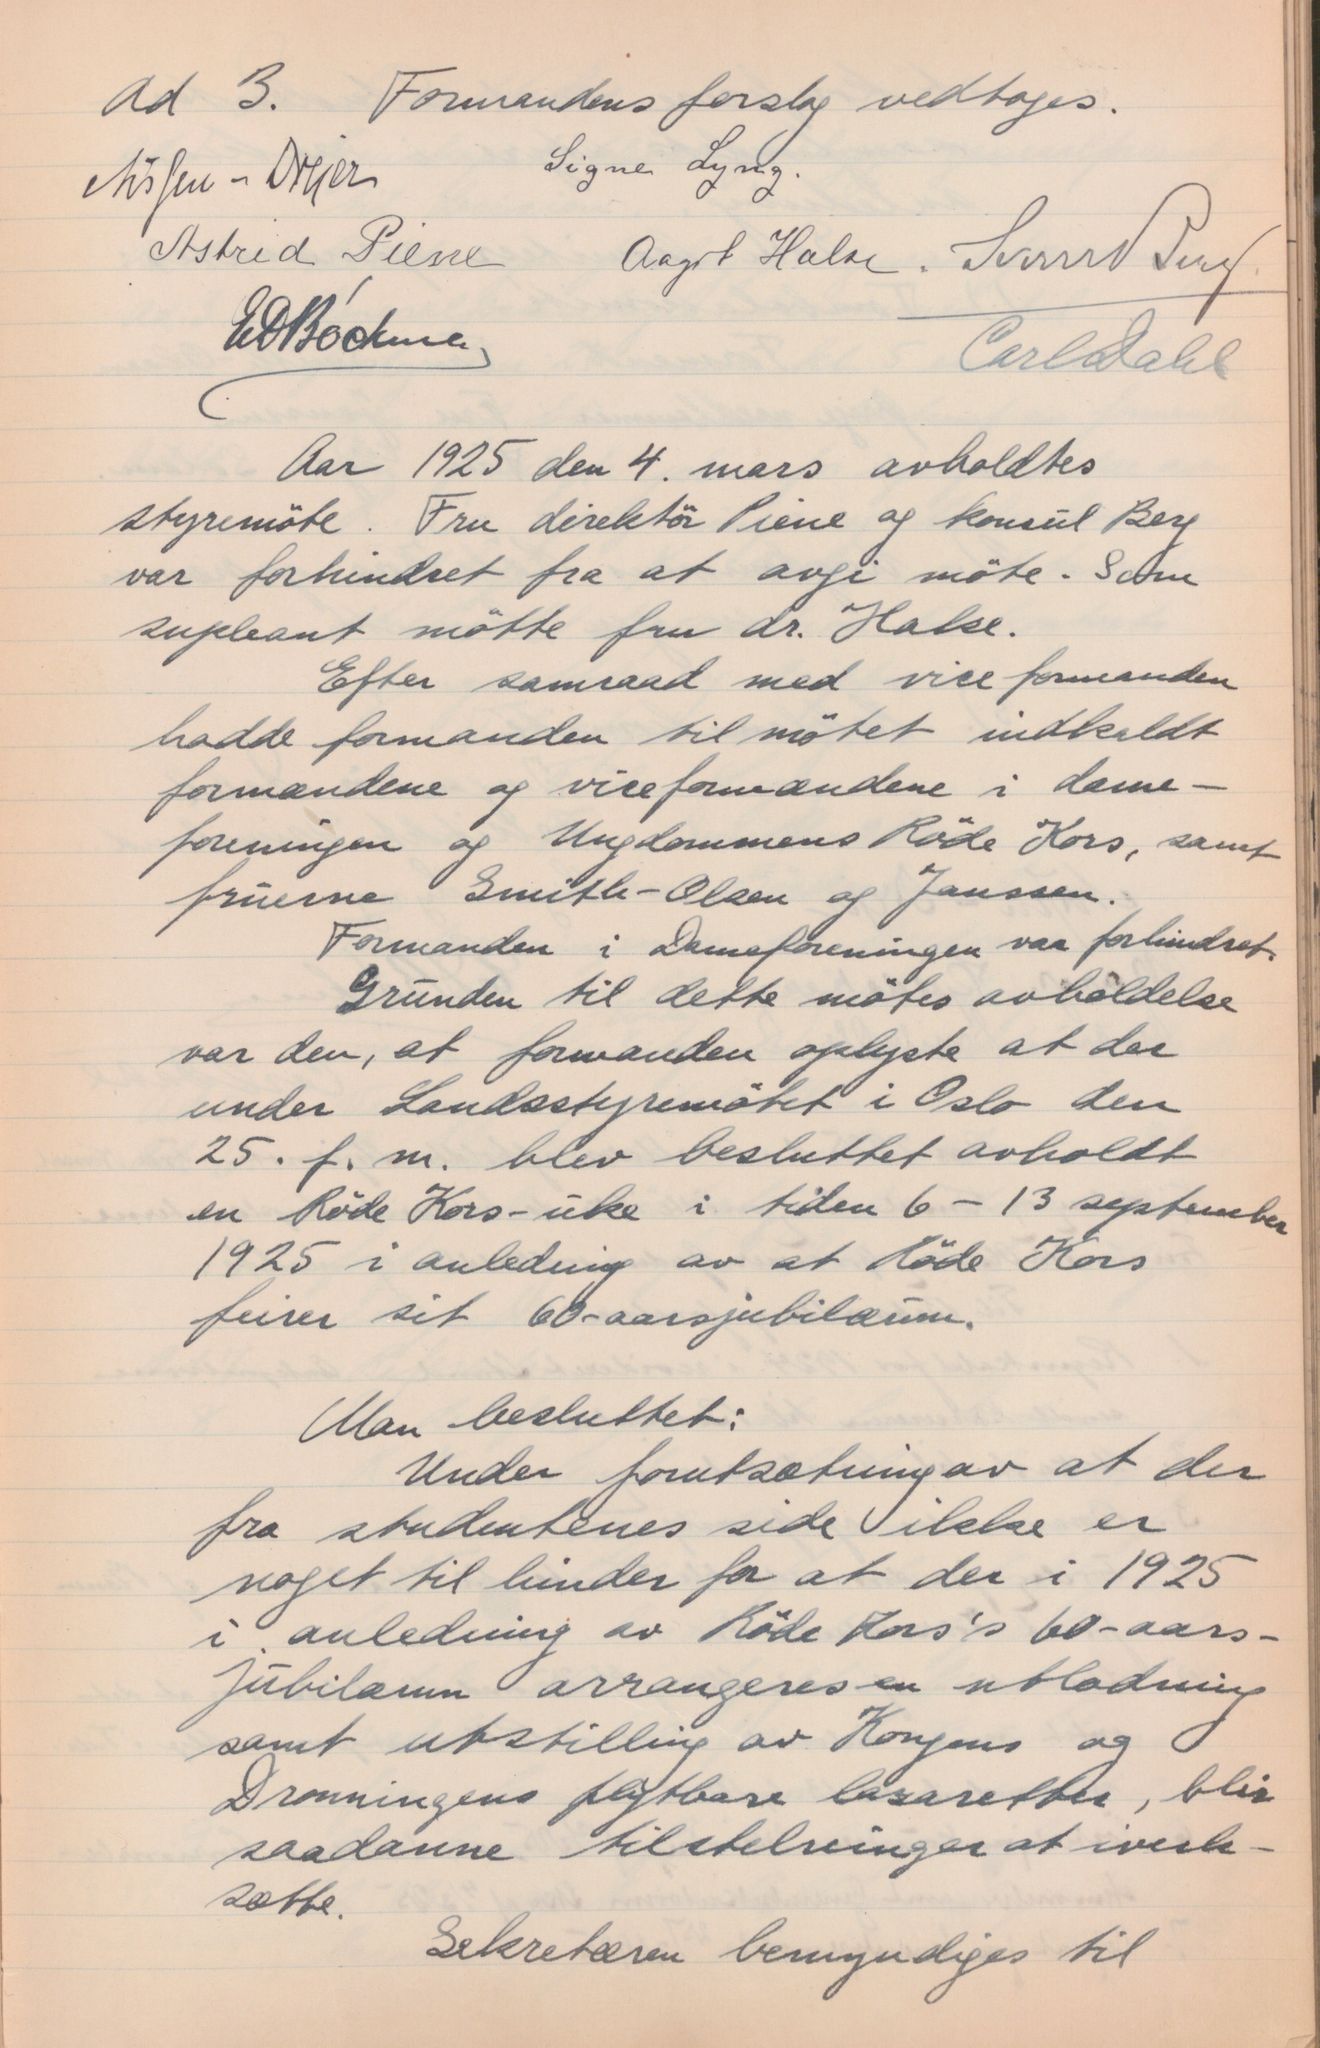 Ad 3. Formandens forslag vedtages.
Signe Lyng.
Astrid Piene Aagot Halse.
Carl Dahl
Aar 1925 den 4. mars avholdtes
styremöte. Fru direktör Piene og konsul Berg
var forhindret fra at avgi möte. Som
supleant mötte fru dr. Halse.
Efter samraad med viceformanden
hadde formanden til mötet indkaldt
formændene og viceformændene i dame-
foreningen og Ungdommens Röde Kors, samt
fruerne Smith-Olsen og Janssen.
Formanden i Dameforeningen var forhindret.
Grunden til dette mötes avholdelse
var den, at formanden oplyste at der
under Landsstyremötet i Oslo den
25. f. m. blev besluttet avholdt
en Röde Kors-uke i tiden 6 - 13 september
1925 i anledning av at Röde Kors
feirer sit 60-aarsjubilæum.
Man besluttet:
Under forutsætning av at der
fra studentenes side ikke er
noget til hinder for at der i 1925
i anledning av Röde Kors's 60-aars-
jubilæum arrangeres en utlodning
samt utstilling av Kongens og
Dronningens flytbare lasaretter, blir
saadanne tilstelninger at iverk-
sætte.
Sekretæren bemyndiges til